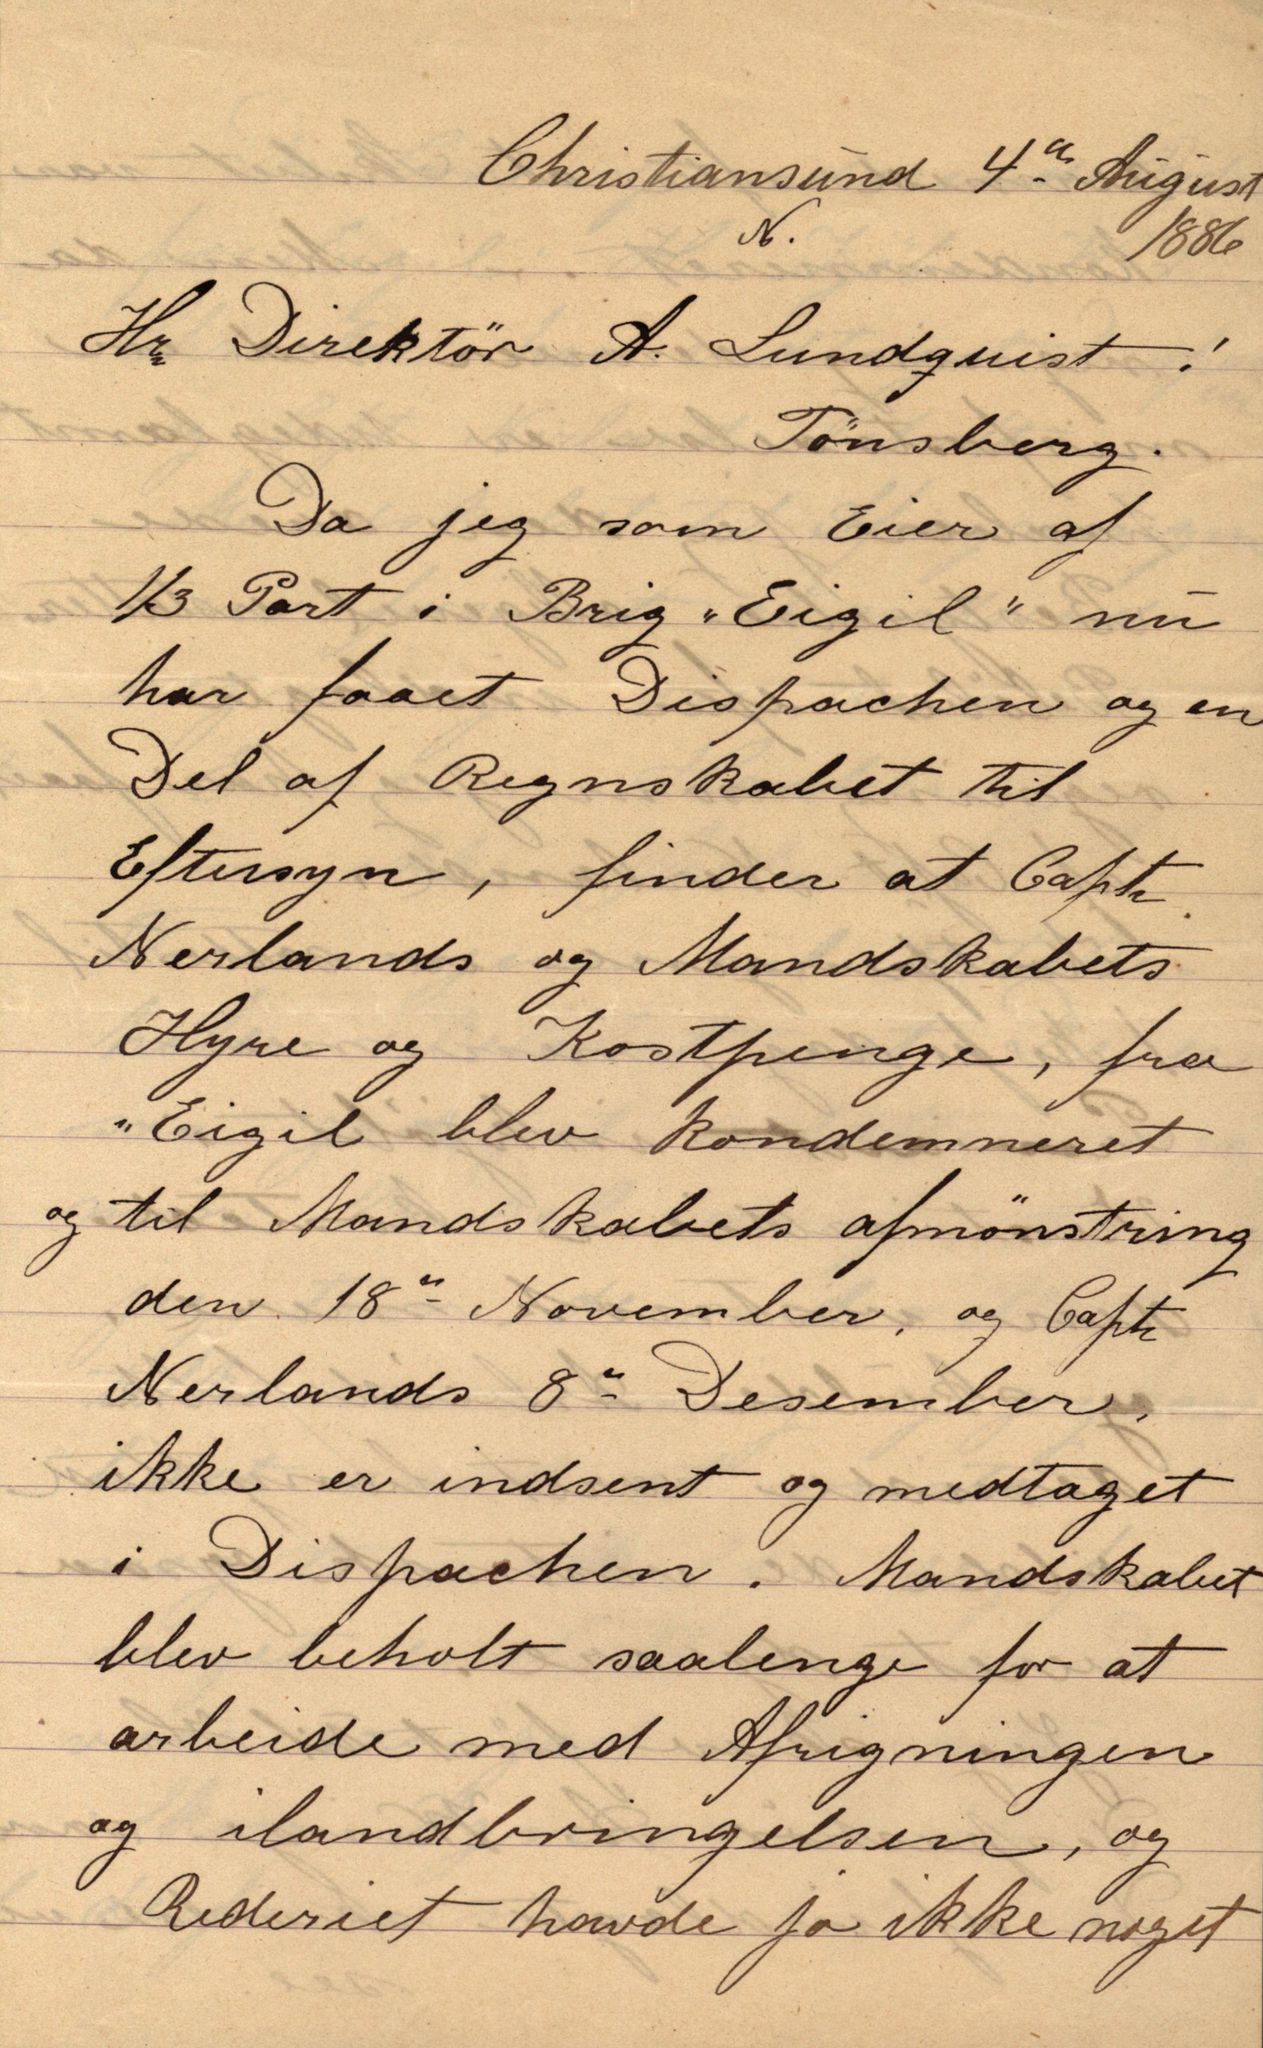 Christiansund 4de August
N. 1886
Hr Direktör A. Lundquist!
Tönsberg.
Da jeg som Eier af
1/3 Part i Brig "Eigil" nu
har faaet Dispachen og en
Del af Regnskabet til
Eftersyn, finder at Capt.
Nerlands og Mandskabets
Hyre og Kostpenge, fra
"Eigil blev kondemneret
og til Mandskabets afmönstring
den 18de November, og Capt
Nerlands 8de Desember,
ikke er indsent og medtaget
i Dispachen. Mandskabet
blev beholt saalenge for at
arbeide med Afrigningen
og ilandbringelsen, og
Rederiet havde jo ikke noget